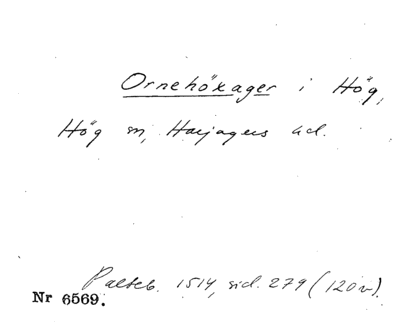 Ornehöxager i Hög,
Hög sn, Harjagers hd.
Palteb. 1514, sid. 279 (120v).
Nr 6569.